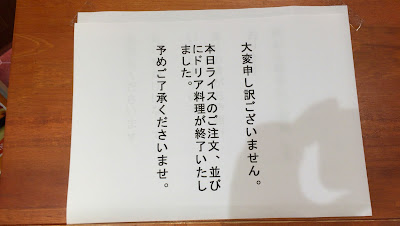 大変申し訳ございません。
本日ライスのご注文、並び
にドリア料理が終了いたし
ました。
予めご了承くださいませ。